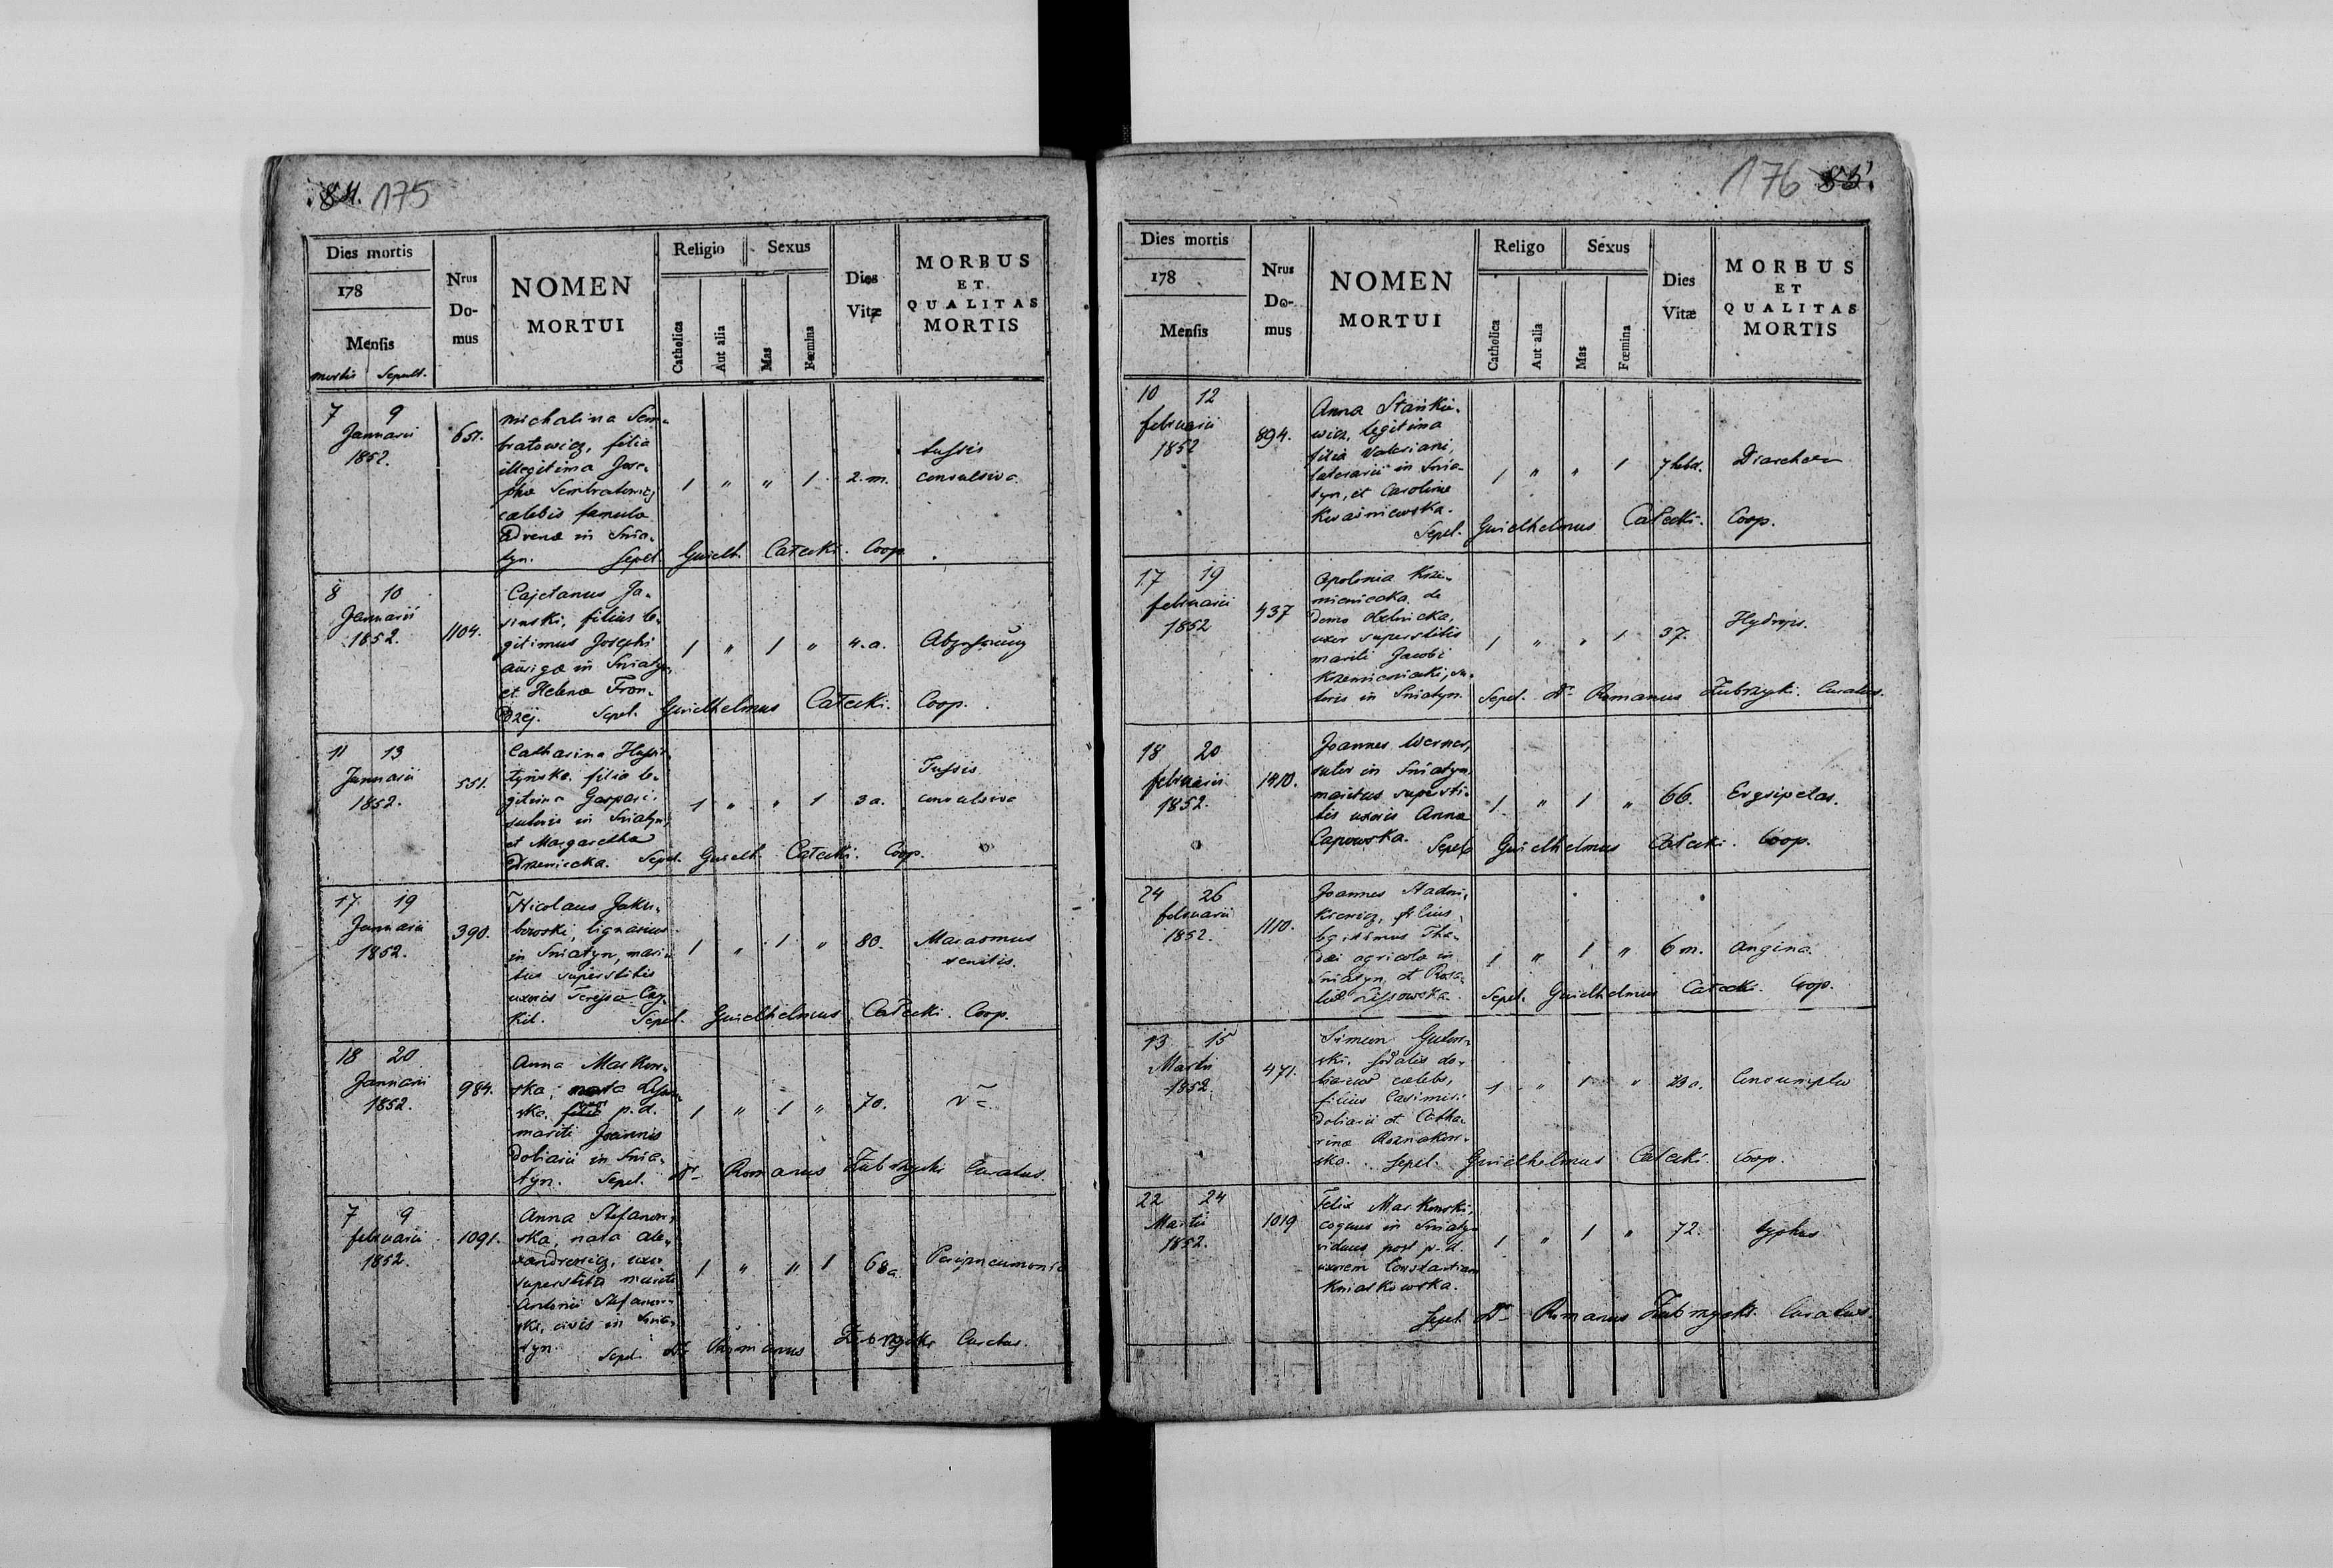 84. 175
Dies mortis
178
Mensis
mortis Sepult.
Nrus
Do-
mus
NOMEN
MORTUI
Religio
Catholica
Aut alia
Sexus
Mas
Fœmina
Dies
Vitæ
MORBUS
ET
QUALITAS
MORTIS
7 9
Januarii
1852.
657.
Michalina Sem-
bratowicz, filia
illegitima Jose-
phæ Sembratowicz
cælebis famula
in Snia-
tyn. Sepel. Guielh. Całecki. Coop.
1 " " 1 2. m.
tussis
convulsiva
8 10
Januarii
1852.
1104.
Cajetanus Ja-
sinski, filius le-
gitimus Josephi
aurigæ in Sniatyn,
et Helenæ Fron-
dzej. Sepel. Guielhelmus Całecki. Coop.
1 " 1 " 4. a.
Abzehrung
11 13
Januarii
1852.
551.
Catharina
filia le-
gitima Gaspari
sutoris in Sniatyn,
et Margaretha
Sepel. Guielh. Całecki. Coop.
1 " " 1 3 a.
Tussis
convulsiva
17 19
Januarii
1852.
390.
Nicolaus Jaku-
bowski, lignarius
in Sniatyn, mari-
tus superstitis
uxoris Teressæ
Sepel. Guielhelmus Całecki. Coop.
1 " 1 " 80.
Marasmus
senilis.
18 20
Januarii
1852.
984.
Anna Markow-
ska, nata
ska. p. d.
mariti Joannis
doliarii in Snia-
tyn. Sepel. Dr Romanus Zubrzycki Curatus.
1 " 1 " 70.
7 9
februarii
1852.
1091.
Anna Stefanow-
ska, nata Ale-
xandrowicz, uxor
superstitis mariti
Antonii Stefanow-
ski, civis in Snia-
tyn. Sepel. Dr Romanus Zubrzycki Curatus.
1 " " 1 68 a.
Peripneumonia
176 85.
Dies mortis
178
Mensis
Nrus
Do-
mus
NOMEN
MORTUI
Religo
Catholica
Aut alia
Sexus
Mas
Fœmina
Dies
Vitæ
MORBUS
ET
QUALITAS
MORTIS
10 12
februarii
1852
894.
Anna Stankie-
wicz, legitima
filia Valeriani,
laterarii in Snia-
tyn, et Carolinæ
Kwaśniewska.
Sepel. Guielhelmus Całecki. Coop.
1 " " 1 7 hebd.
17 19
februarii
1852
437
Apolonia Krze-
mieniecka de
domo
uxor superstitis
mariti Jacobi
Krzemieniecki, su-
toris in Sniatyn. Sepel. Dr Romanus Zubrzycki. Curatus.
1 " " 1 37.
Hydrops.
18 20
februarii
1852.
1410.
Joannes Werner,
sutor in Sniatyn,
maritus supersti-
tis uxoris Anna
Capowska. Sepel. Guielhelmus Całecki. Coop.
1 " 1 " 66.
Erysipelas.
24 26
februarii
1852.
1110.
Joannes Stadni-
kiewicz, filius
legitimus Tha-
dæi agricola in
Sniatyn et Rosa-
liæ Lissowska. Sepel. Guielhelmus Całecki. Coop.
1 " 1 " 6 m.
Angina.
13 15
Martii
1852.
471.
Simeon Gutow-
ski, sodalis do-
liarius cælebs,
filius Casimiri
doliarii et Catha-
rinæ
ska. Sepel. Guielhelmus Całecki. Coop.
1 " 1 "
22 24
Martii
1852.
1019
Felix Markowski,
coquus in Sniatyn
viduus post p. d.
uxorem Constantiam
Kniaskowska.
Sepel. Dr Romanus Zubrzycki. Curatus.
1 " 1 " 72.
typhus